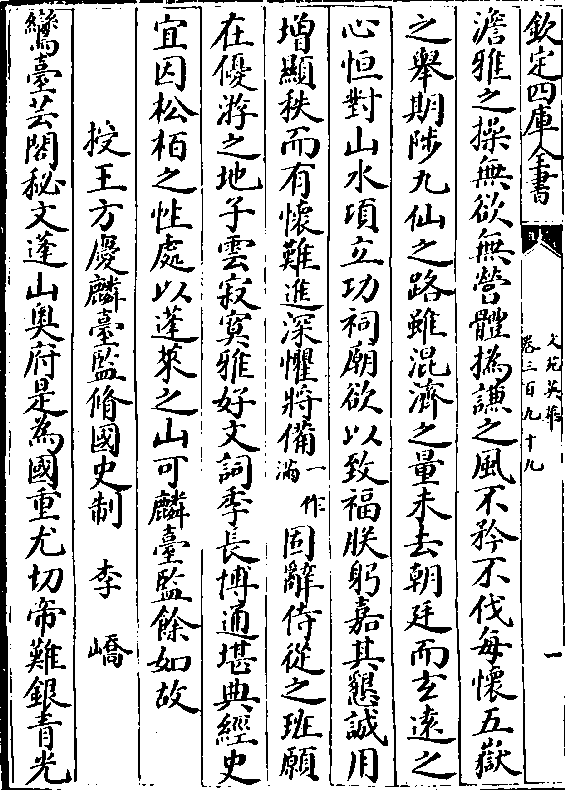 欽定四庫全書
文苑英華
卷三百九十九
一
澹雅之操無欲無營體撝謙之風不矜不伐每懷五嶽
之舉期陟九仙之路雖混濟之量未去朝廷而玄遠之
心恒對山水項立功祠廟欲以致福朕躬嘉其懇誠用
增顯秩而有懷難進深懼將備一作滿固辭侍從之班願
在優游之地子雲寂寞雅好文詞季長博通堪典經史
宜因松柏之性處以蓬萊之山可麟臺監餘如故
授王方慶麟臺監脩國史制 李嶠
鸞臺芸閣秘文蓬山奥府是為國重尤切帝難銀青光